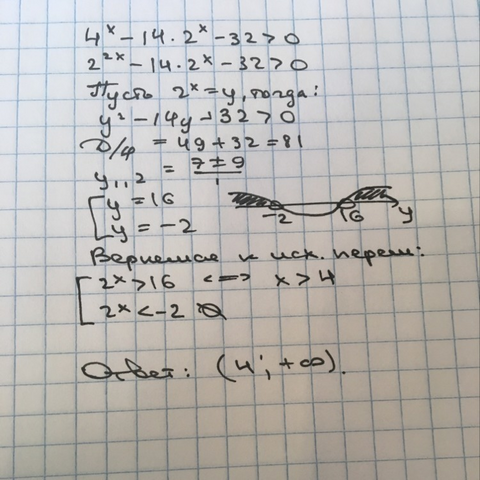 4ˣ − 14 · 2ˣ − 32 > 0
2²ˣ − 14 · 2ˣ − 32 > 0
Пусть 2ˣ = y, тогда:
y² − 14y − 32 > 0
D/4 = 49 + 32 = 81
y₁,₂ = (7 ± 9)/1
[ y = 16
y = −2
−2 16 y
Вернемся к исх. перем:
[ 2ˣ > 16 <=> x > 4
2ˣ < −2 ∅
Ответ: (4; +∞).